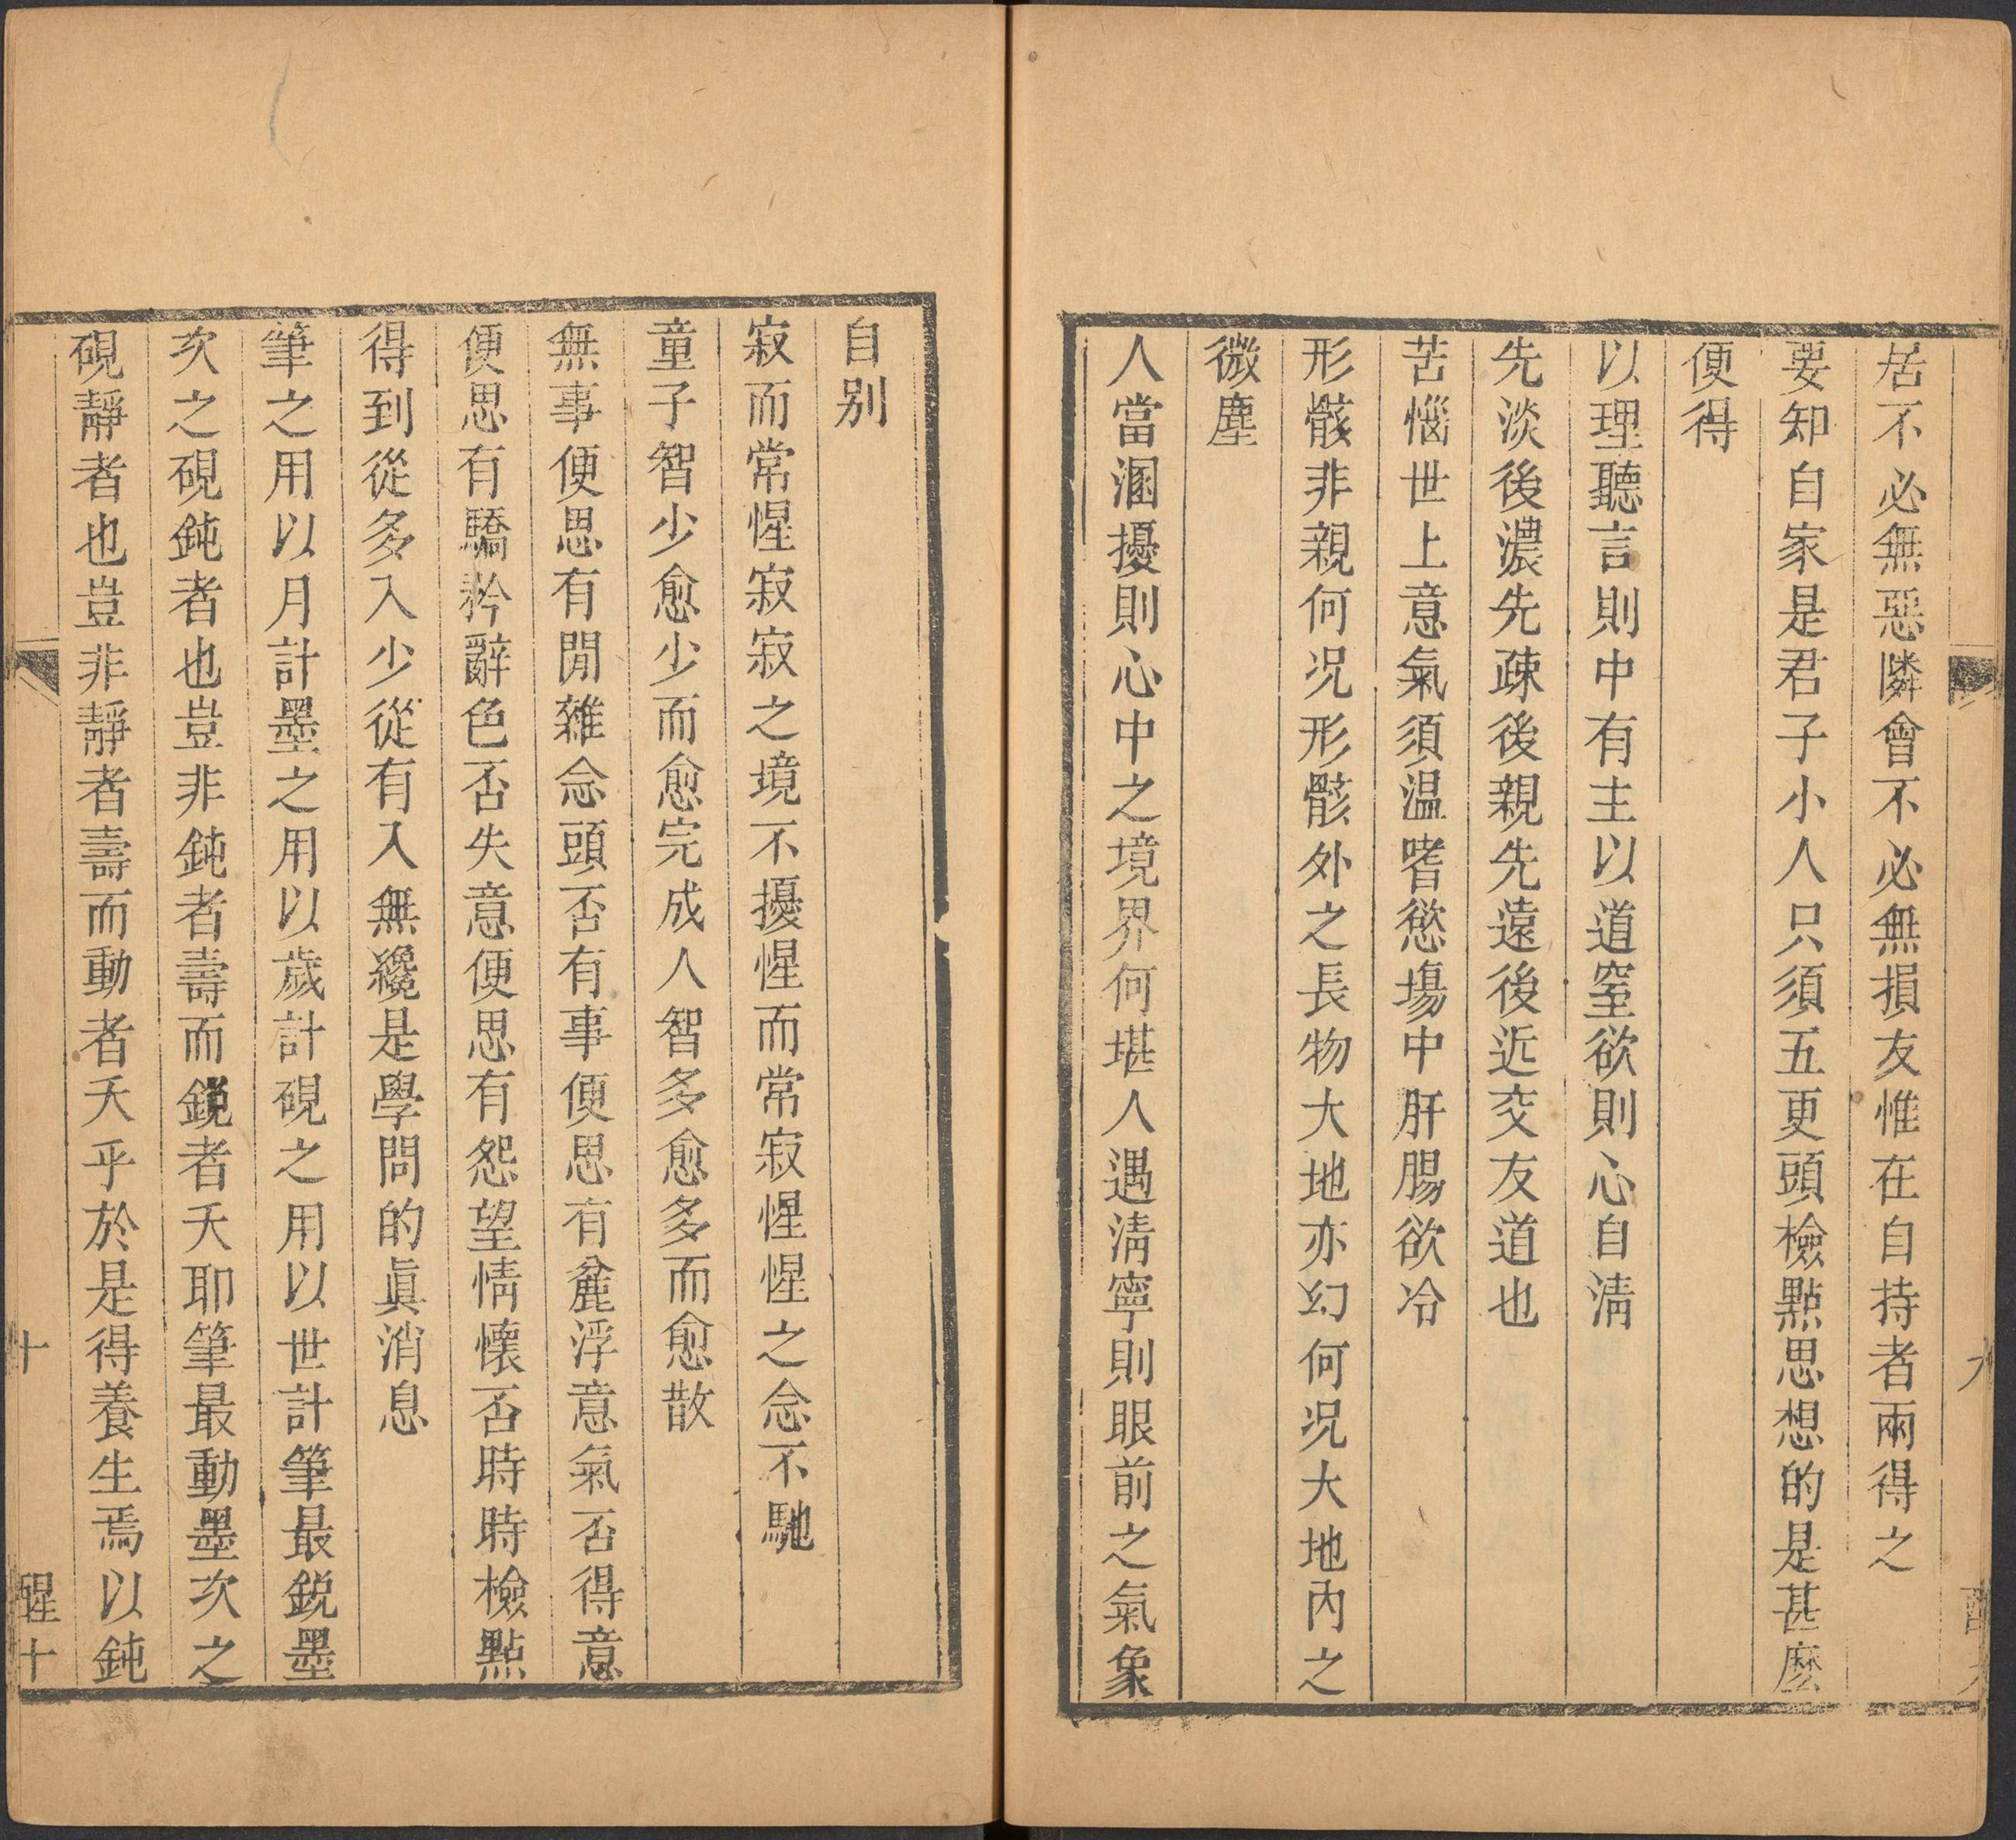 居不必無惡隣會不必無損友惟在自持者兩得之
要知自家是君子小人只須五更頭檢點思想的是甚麼
便得
以理聽言則中有主以道窒欲則心自淸
先淡後濃先疎後親先遠後近交友道也
苦惱世上意氣須温嗜慾塲中肝腸欲冷
形骸非親何况形骸外之長物大地亦幻何况大地內之
微塵
人當溷擾則心中之境界何堪人遇淸寧則眼前之氣象
九
自别
寂而常惺寂寂之境不擾惺而常寂惺惺之念不馳
童子智少愈少而愈完成人智多愈多而愈散
無事便思有閒雜念頭否有事便思有麄浮意氣否得意
便思有驕矜辭色否失意便思有怨望情懷否時時檢點
得到從多入少從有入無纔是學問的眞消息
筆之用以月計墨之用以歲計硯之用以世計筆最鋭墨
次之硯鈍者也豈非鈍者壽而鋭者夭耶筆最動墨次之
硯靜者也豈非靜者壽而動者夭乎於是得養生焉以鈍
十
醒十